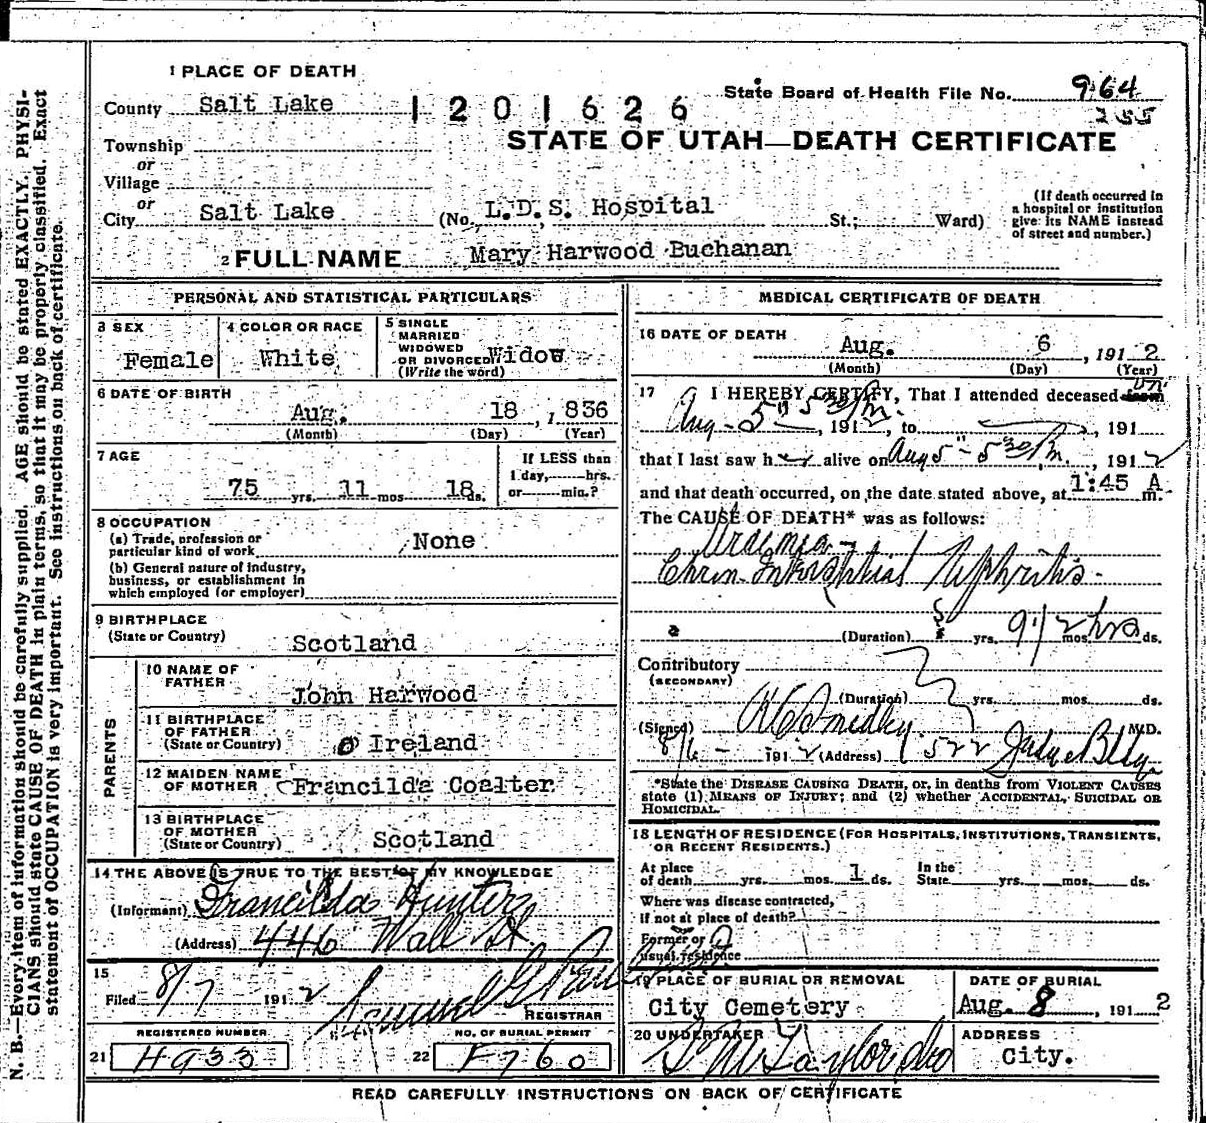 1 PLACE OF DEATH
County Salt Lake
1201626
State Board of Health File No. 964
255
STATE OF UTAH—DEATH CERTIFICATE
Township
or
Village
or
City Salt Lake (No. L.D.S. Hospital St.; Ward)
(If death occurred in a hospital or institution give its NAME instead of street and number.)
2 FULL NAME Mary Harwood Buchanan
PERSONAL AND STATISTICAL PARTICULARS
3 SEX Female
4 COLOR OR RACE White
5 SINGLE MARRIED WIDOWED OR DIVORCED (Write the word) Widow
6 DATE OF BIRTH
Aug. 18, 1836
(Month) (Day) (Year)
7 AGE
75 yrs. 11 mos 18 ds.
If LESS than 1 day, hrs. or min.?
8 OCCUPATION
(a) Trade, profession or particular kind of work None
(b) General nature of industry, business, or establishment in which employed (or employer)
9 BIRTHPLACE
(State or Country) Scotland
PARENTS
10 NAME OF FATHER John Harwood
11 BIRTHPLACE OF FATHER (State or Country) Ireland
12 MAIDEN NAME OF MOTHER Francilda Coalter
13 BIRTHPLACE OF MOTHER (State or Country) Scotland
14 THE ABOVE IS TRUE TO THE BEST OF MY KNOWLEDGE
(Informant) Francilda Hunter
(Address) 446 Wall St
15
Filed 8/7 1912 Samuel G
REGISTRAR
REGISTERED NUMBER
21 H933
NO. OF BURIAL PERMIT
22 F760
MEDICAL CERTIFICATE OF DEATH
16 DATE OF DEATH
Aug. 6, 1912
(Month) (Day) (Year)
17 I HEREBY CERTIFY, That I attended deceased on
Aug 5" 5 30 P.M., 1912, to , 191
that I last saw her alive on Aug 5" 5 30 P.m., 1912
and that death occurred, on the date stated above, at 1:45 A m.
The CAUSE OF DEATH* was as follows:
Uraemia
Chron Interstitial Nephritis
(Duration) yrs. 9 1/2 hrs mos. ds.
Contributory
(SECONDARY)
(Duration) yrs. mos. ds.
(Signed) M.D.
8/6 1912 (Address) 522 Judge Bldg
*State the DISEASE CAUSING DEATH, or, in deaths from VIOLENT CAUSES
state (1) MEANS OF INJURY; and (2) whether ACCIDENTAL, SUICIDAL OR
HOMICIDAL.
18 LENGTH OF RESIDENCE (FOR HOSPITALS, INSTITUTIONS, TRANSIENTS,
OR RECENT RESIDENTS.)
At place of death yrs. mos. 1 ds. In the State yrs. mos. ds.
Where was disease contracted,
if not at place of death?
Former or
usual residence
19 PLACE OF BURIAL OR REMOVAL
City Cemetery
DATE OF BURIAL
Aug. 8, 1912
20 UNDERTAKER
S M Taylor
ADDRESS
City.
READ CAREFULLY INSTRUCTIONS ON BACK OF CERTIFICATE
N. B.—Every item of information should be carefully supplied. AGE should be stated EXACTLY. PHYSI-
CIANS should state CAUSE OF DEATH in plain terms, so that it may be properly classified. Exact
statement of OCCUPATION is very important. See instructions on back of certificate.